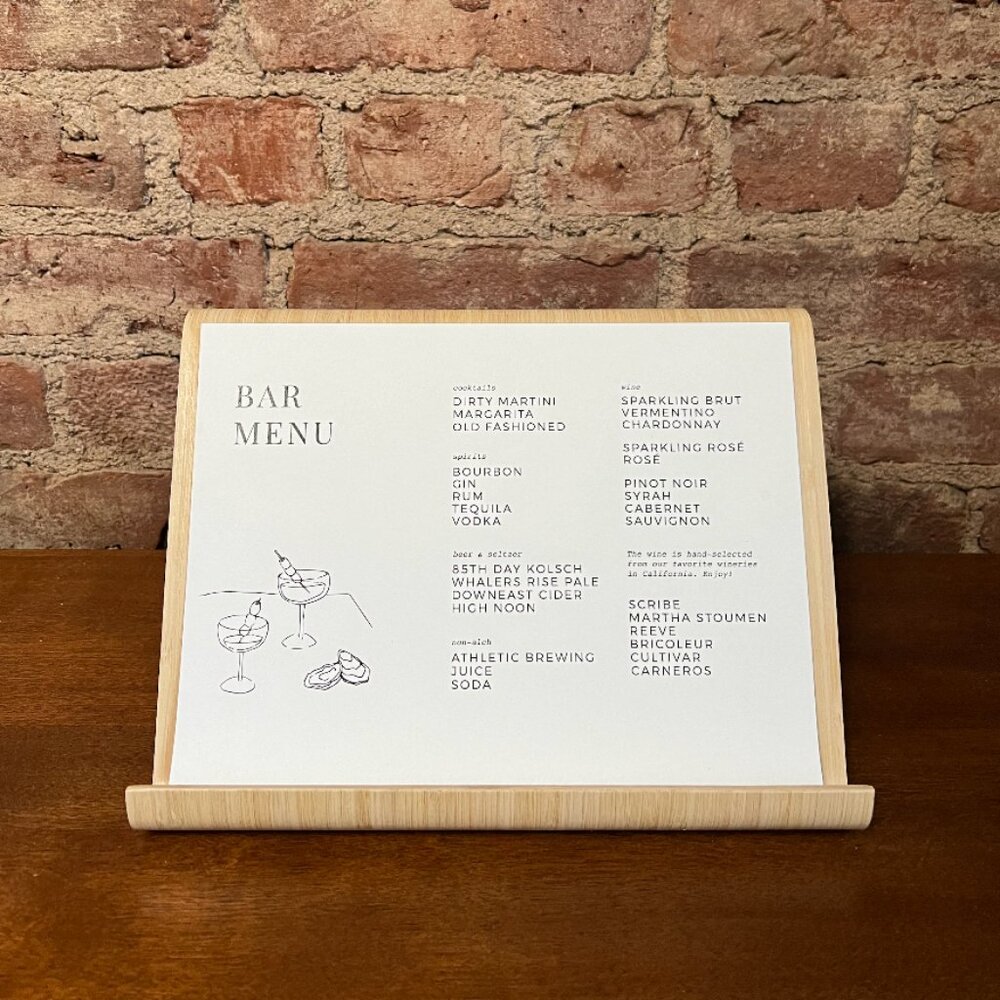 BAR
MENU
cocktails
DIRTY MARTINI
MARGARITA
OLD FASHIONED
spirits
BOURBON
GIN
RUM
TEQUILA
VODKA
beer & seltzer
85TH DAY KOLSCH
WHALERS RISE PALE
DOWNEAST CIDER
HIGH NOON
non-alch
ATHLETIC BREWING
JUICE
SODA
wine
SPARKLING BRUT
VERMENTINO
CHARDONNAY
SPARKLING ROSÉ
ROSÉ
PINOT NOIR
SYRAH
CABERNET
SAUVIGNON
The wine is hand-selected
from our favorite wineries
in California. Enjoy!
SCRIBE
MARTHA STOUMEN
REEVE
BRICOLEUR
CULTIVAR
CARNEROS